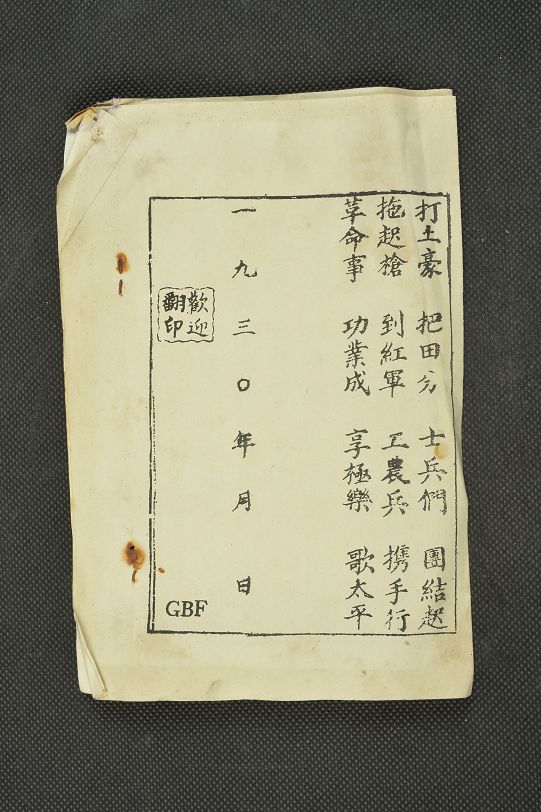 打土豪 把田分 士兵們 團結起
拖起槍 到紅軍 工農兵 携手行
革命事 功業成 享極樂 歌太平
一九三〇年 月 日
歡迎
翻印
GBF